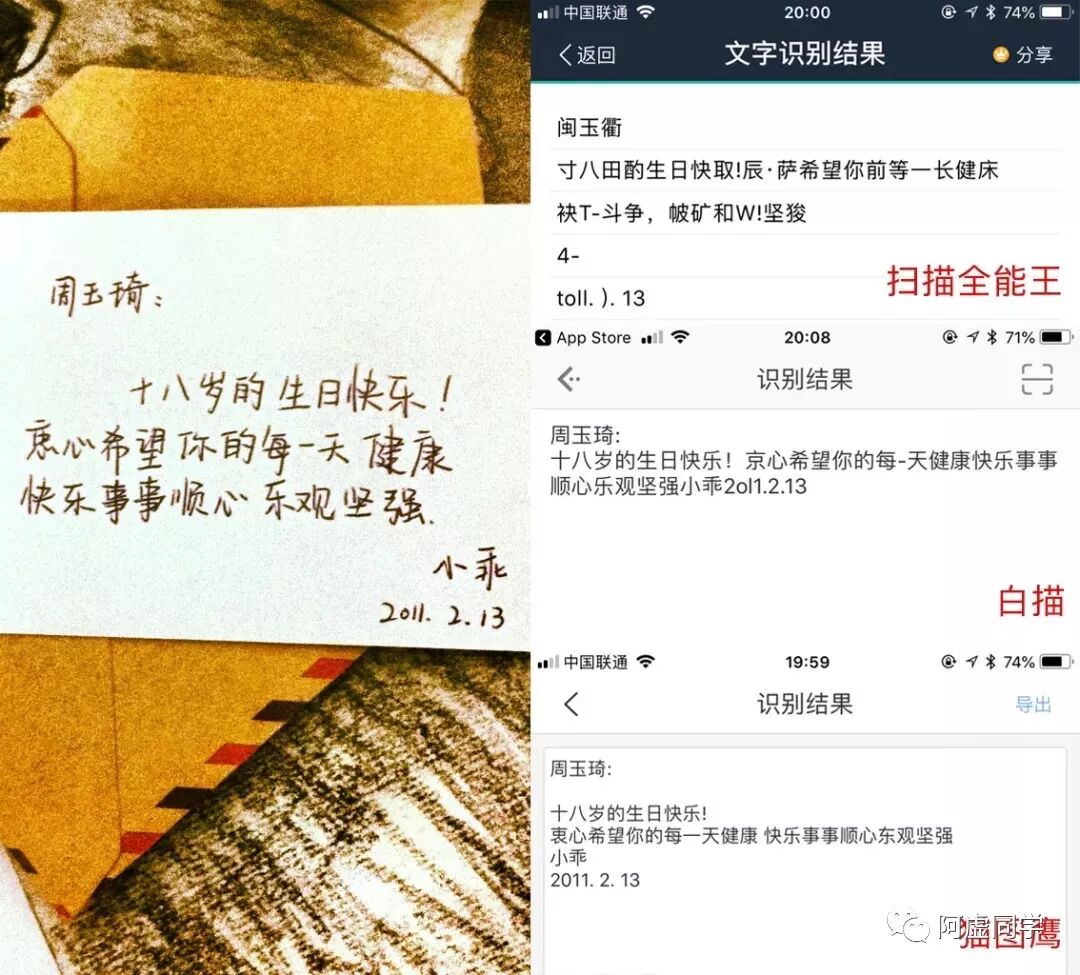 周玉琦：
十八岁的生日快乐！
衷心希望你的每一天健康
快乐事事顺心乐观坚强.
小乖
2011. 2. 13
中国联通 20:00 74%
返回 文字识别结果 分享
闽玉衢
寸八田酌生日快取!辰·萨希望你前等一长健床
袂T-斗争，帔矿和W!坚狻
4-
toll. ). 13
扫描全能王
App Store 20:08 71%
识别结果
周玉琦:
十八岁的生日快乐！京心希望你的每-天健康快乐事事
顺心乐观坚强小乖2ol1.2.13
白描
中国联通 19:59 74%
识别结果 导出
周玉琦:
十八岁的生日快乐!
衷心希望你的每一天健康 快乐事事顺心东观坚强
小乖
2011. 2. 13
阿虚同学
猫图鹰